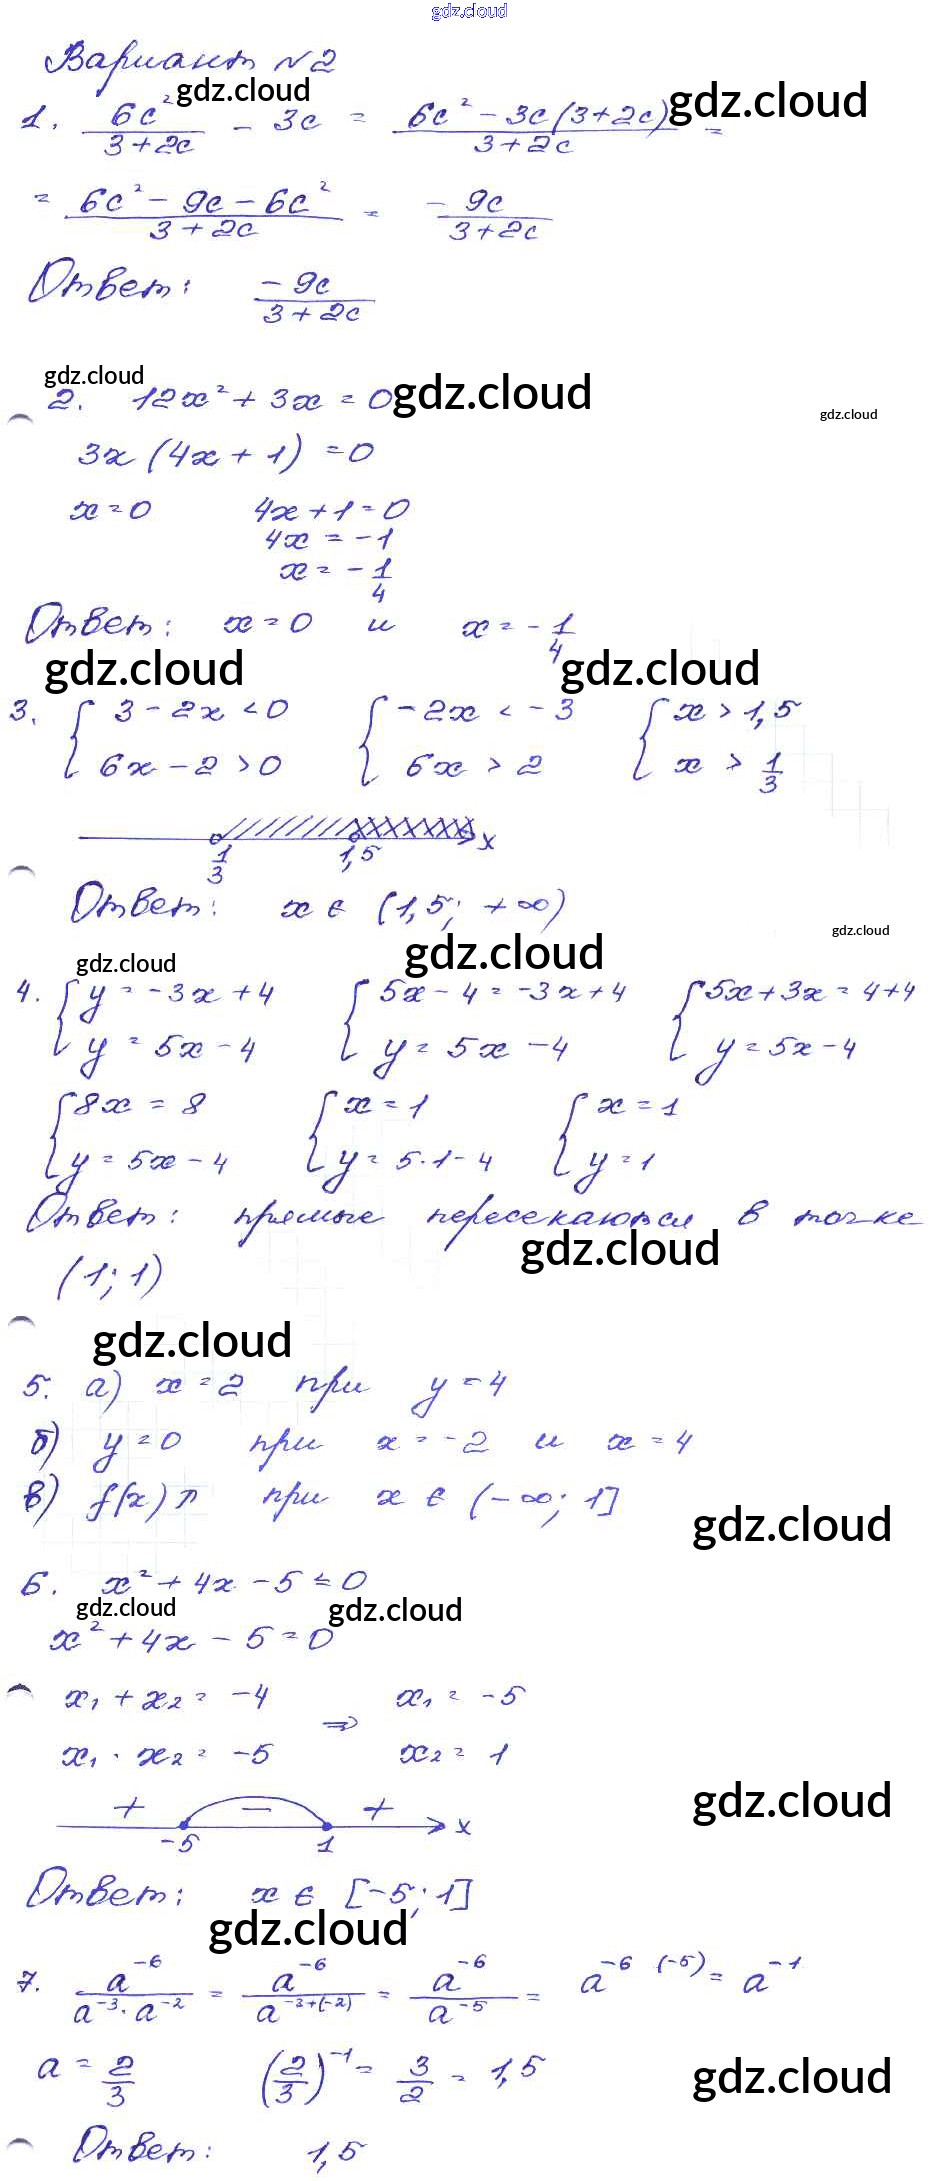 gdz.cloud
Вариант №2
gdz.cloud
gdz.cloud
1. 6c²/(3+2c) - 3c = (6c² - 3c(3+2c))/(3+2c) =
= (6c² - 9c - 6c²)/(3+2c) = -9c/(3+2c)
Ответ: -9c/(3+2c)
gdz.cloud
gdz.cloud
gdz.cloud
2. 12x² + 3x = 0
3x (4x + 1) = 0
x = 0 4x + 1 = 0
4x = -1
x = -1/4
Ответ: x = 0 и x = -1/4
gdz.cloud
gdz.cloud
3. { 3 - 2x < 0 { -2x < -3 { x > 1,5
6x - 2 > 0 6x > 2 x > 1/3
1/3 1,5 x
Ответ: x ∈ (1,5; +∞)
gdz.cloud
gdz.cloud
gdz.cloud
4. { y = -3x + 4 { 5x - 4 = -3x + 4 { 5x + 3x = 4 + 4
y = 5x - 4 y = 5x - 4 y = 5x - 4
{ 8x = 8 { x = 1 { x = 1
y = 5x - 4 y = 5·1 - 4 y = 1
Ответ: прямые пересекаются в точке
gdz.cloud
(1; 1)
gdz.cloud
5. а) x = 2 при y = 4
б) y = 0 при x = -2 и x = 4
в) f(x) ↗ при x ∈ (-∞; 1]
gdz.cloud
6. x² + 4x - 5 ≤ 0
gdz.cloud
gdz.cloud
x² + 4x - 5 = 0
x₁ + x₂ = -4 ⇒ x₁ = -5
x₁ · x₂ = -5 x₂ = 1
gdz.cloud
+ − + x
-5 1
Ответ: x ∈ [-5; 1]
gdz.cloud
7. a⁻⁶/(a⁻³ · a⁻²) = a⁻⁶/a^(-3+(-2)) = a⁻⁶/a⁻⁵ = a^(-6 (-5)) = a⁻¹
a = 2/3 (2/3)⁻¹ = 3/2 = 1,5
gdz.cloud
Ответ: 1,5